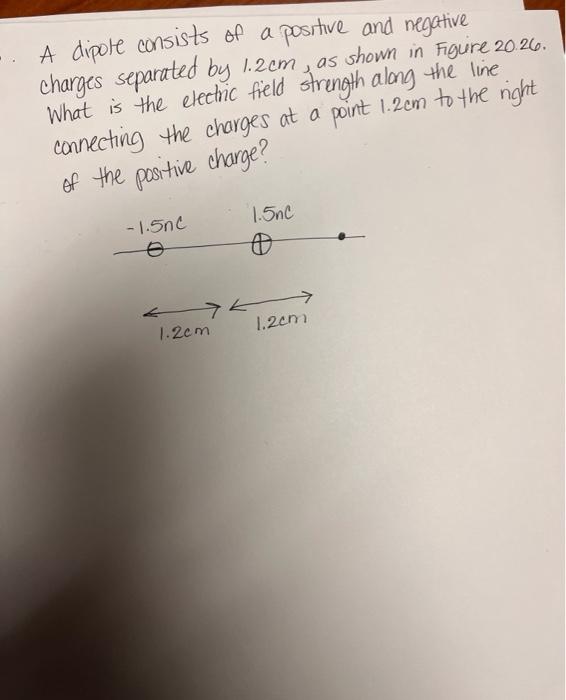 A dipole consists of a positive and negative
charges separated by 1.2cm, as shown in Figure 20.26.
What is the electric field strength along the line
connecting the charges at a point 1.2cm to the right
of the positive charge?
-1.5nC 1.5nC
1.2cm 1.2cm